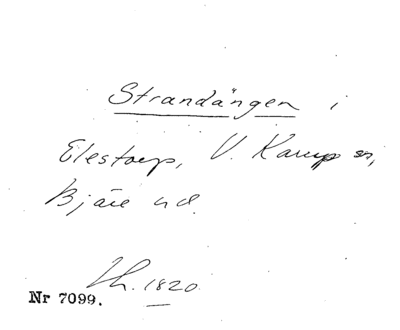 Strandängen i
Elestorp, V. Karup sn,
Bjäre hd.
Lh. 1820
Nr 7099.